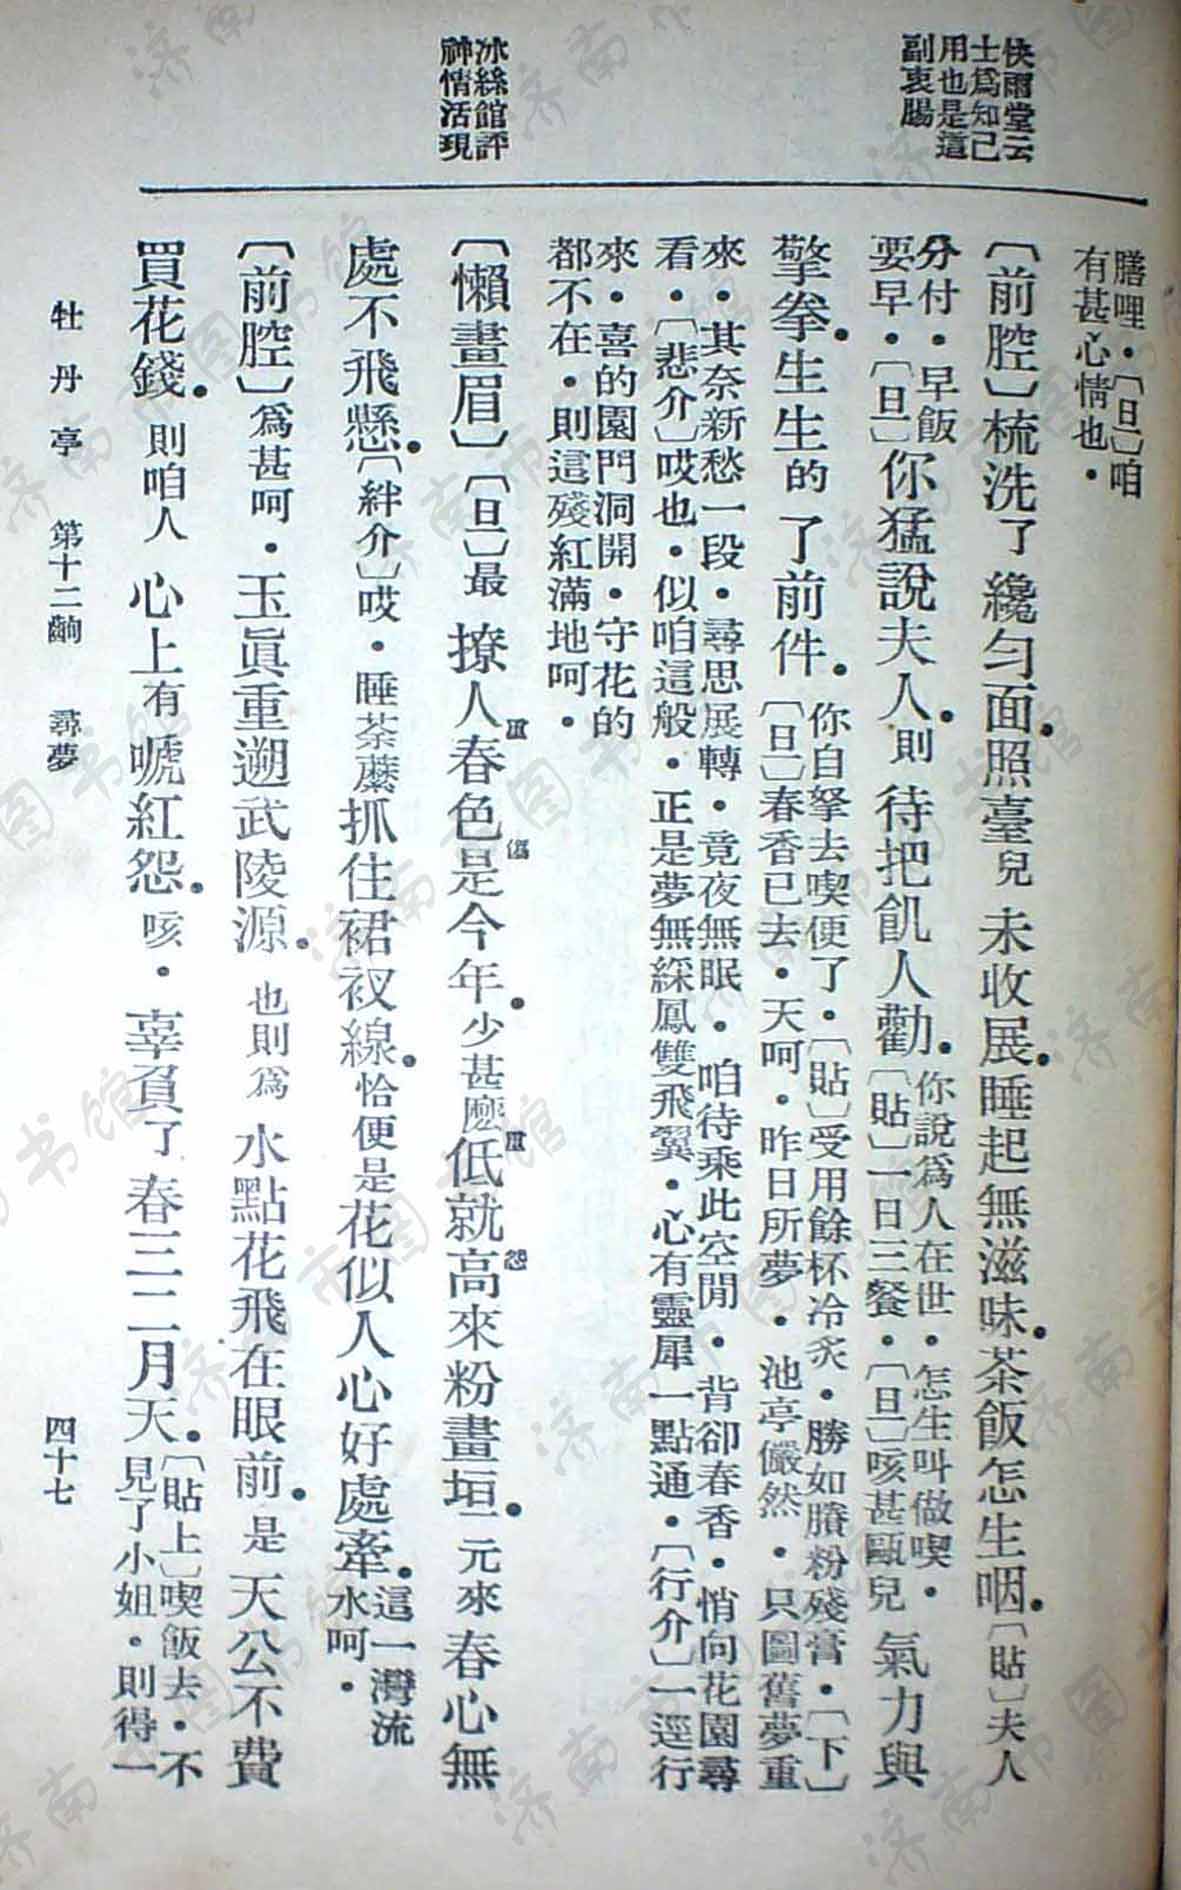 快雨堂云
士爲知己
用也是這
副衷腸
冰絲館評
神情活現
膳哩・〔旦〕咱
有甚心情也・
〔前腔〕梳洗了纔勻面・照臺兒未收展・睡起無滋味・茶飯怎生咽・〔貼〕夫人
分付・早飯
要早・〔旦〕你猛說夫人・則待把飢人勸・你說爲人在世・怎生叫做喫・
〔貼〕一日三餐・〔旦〕咳甚甌兒氣力與
擎拳・生生的了前件・你自拏去喫便了・〔貼〕受用餘杯冷炙・勝如賸粉殘膏・〔下〕
〔旦〕春香已去・天呵・昨日所夢・池亭儼然・只圖舊夢重
來・其奈新愁一段・尋思展轉・竟夜無眠・咱待乘此空閒・背卻春香・悄向花園尋
看・〔悲介〕哎也・似咱這般・正是夢無綵鳳雙飛翼・心有靈犀一點通・〔行介〕一逕行
來・喜的園門洞開・守花的
都不在・則這殘紅滿地呵・
〔懶畫眉〕〔旦〕最撩人春色是今年・少甚麼低就高來粉畫垣・元來春心無
處不飛懸・〔絆介〕哎・睡荼蘼抓住裙衩線・恰便是花似人心好處牽・這一灣流
水呵・
〔前腔〕爲甚呵・玉眞重遡武陵源・也則爲水點花飛在眼前・是天公不費
買花錢・則咱人心上有嗁紅怨・咳・辜負了春三二月天・〔貼上〕喫飯去・不
見了小姐・則得一
牡丹亭　第十二齣　尋夢　四十七
济南市图书馆